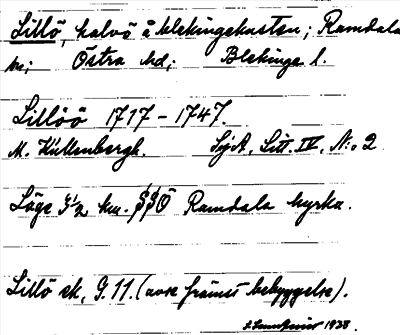 Lillö, halvö å blekingekusten; Ramdala
sn; Östra hd; Blekinge l.
Lillöö 1717-1747.
M. Kullenbergh. SjA. Litt. IV, N:o 2
Läge 3½ km. SSÖ Ramdala kyrka.
Lillö ek, G.11. (avse främst bebyggelse).
1938.